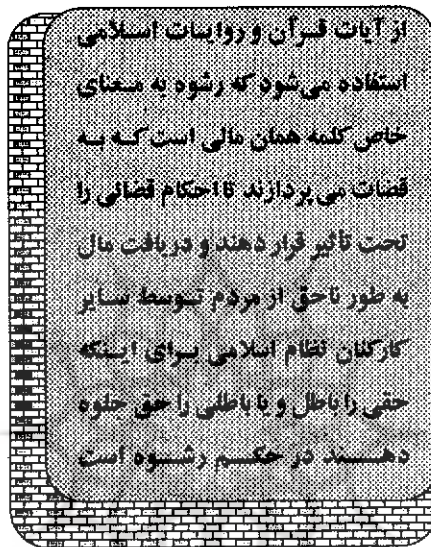 از آیات قرآن و روایات اسلامی
استفاده می‌شود که رشوه به معنای
خاص کلمه همان مالی است که به
قضات می پردازند تا احکام قضائی را
تحت تأثیر قرار دهند و دریافت مال
به طور ناحق از مردم توسط سایر
کارکنان نظام اسلامی برای اینکه
حقی را باطل و یا باطلی را حق جلوه
دهند در حکم رشوه است